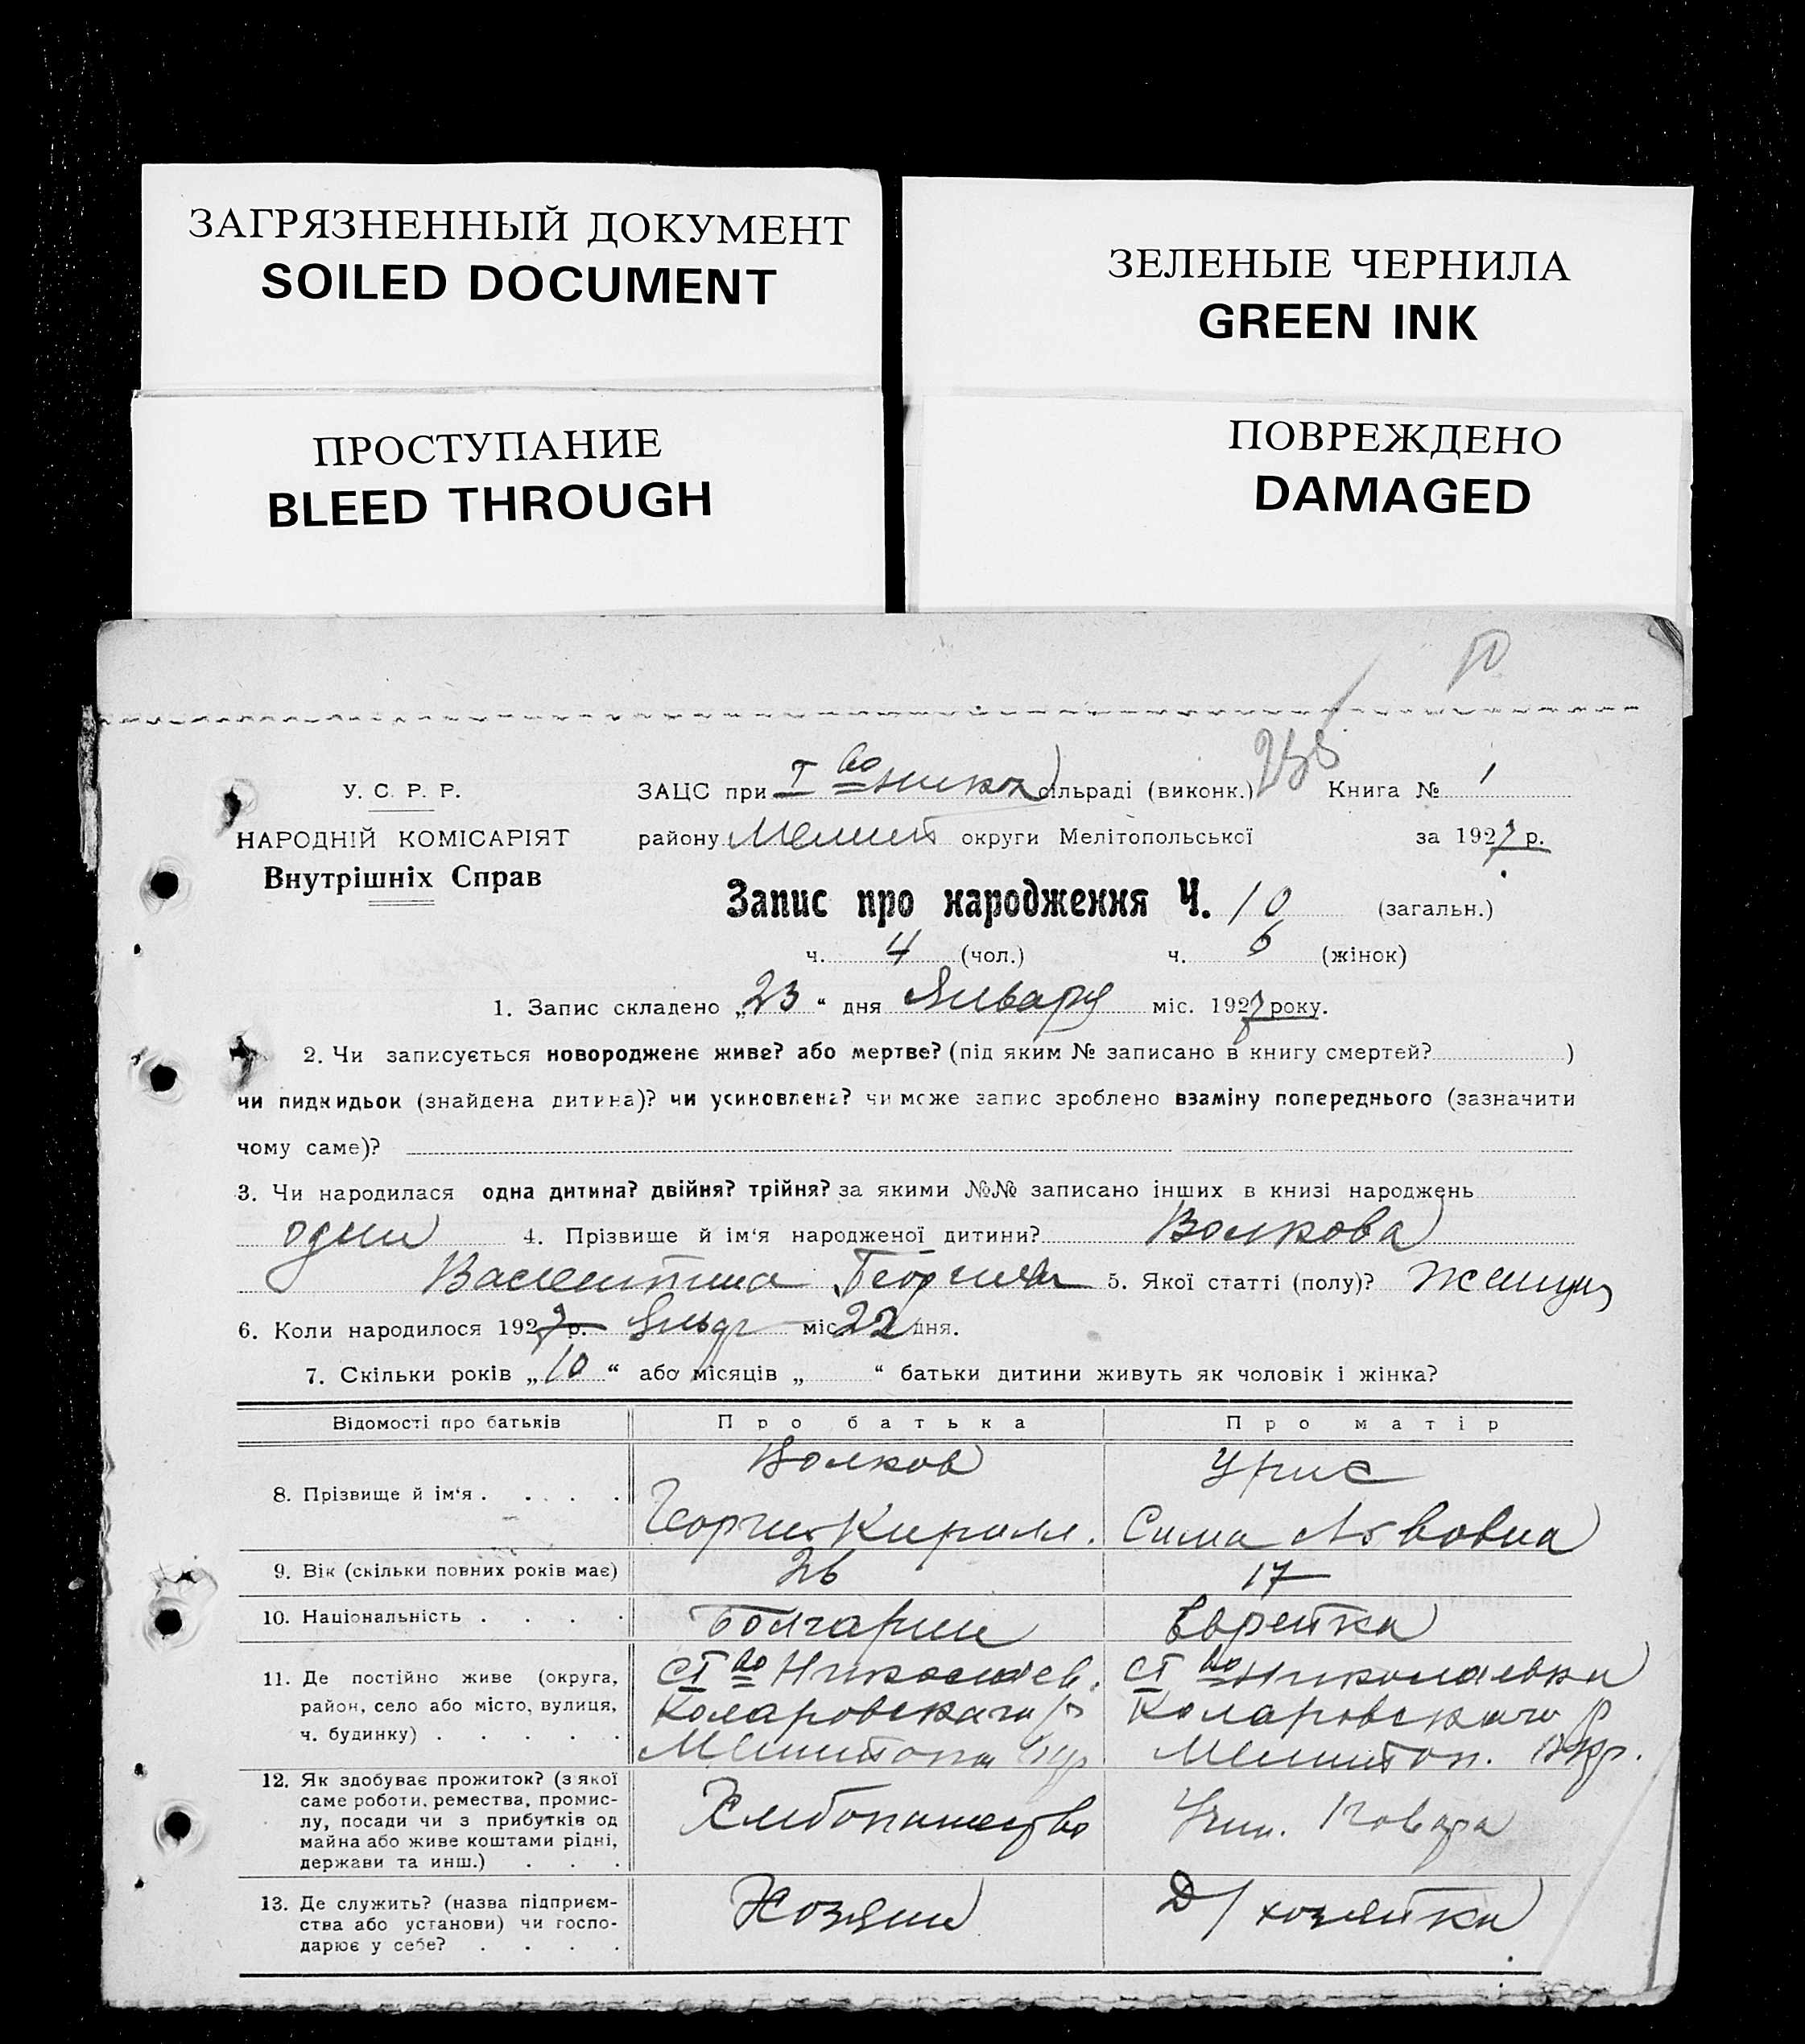 ЗАГРЯЗНЕННЫЙ ДОКУМЕНТ
SOILED DOCUMENT
ЗЕЛЕНЫЕ ЧЕРНИЛА
GREEN INK
ПРОСТУПАНИЕ
BLEED THROUGH
ПОВРЕЖДЕНО
DAMAGED
У. С. Р. Р.
НАРОДНІЙ КОМІСАРІЯТ
Внутрішніх Справ
ЗАЦС при І во Никол сільраді (виконк.) Книга № 1
району Мелит округи Мелітопольської за 1927 р.
Запис про народження Ч. 10 (загальн.)
ч. 4 (чол.) ч. 6 (жінок)
1. Запис складено „23“ дня Января міс. 1927 року.
2. Чи записується новороджене живе? або мертве? (під яким № записано в книгу смертей? )
чи пидкидьок (знайдена дитина)? чи усиновлена? чи може запис зроблено взаміну попереднього (зазначити
чому саме)?
3. Чи народилася одна дитина? двійня? трійня? за якими №№ записано інших в книзі народжень
один 4. Прізвище й ім‘я народженої дитини? Волкова
Валентина Георгиев 5. Якої статті (полу)?
6. Коли народилося 1927 р. міс 22 дня.
7. Скільки років „10“ або місяців „ “ батьки дитини живуть як чоловік і жінка?
Відомості про батьків Про батька Про матір
8. Прізвище й ім‘я . . . . . Волков Урис
Георги Кирилл. Сима Львовна
9. Вік (скільки повних років має) 26 17
10. Національність . . . . Болгарин Еврейка
11. Де постійно живе (округа, район, село або місто, вулиця, ч. будинку) . . . . .
сІ во Николаев. Коларовского р Мелитоп Окр
сІ во Николаевка Коларовского р Мелитоп. Окр.
12. Як здобуває прожиток? (з якої саме роботи, ремества, промислу, посади чи з прибутків од майна або живе коштами рідні, держави та инш.) . . .
Хлебопашество
13. Де служить? (назва підприємства або установи) чи господарює у себе? . . . .
Хозяин Д/хозяйка